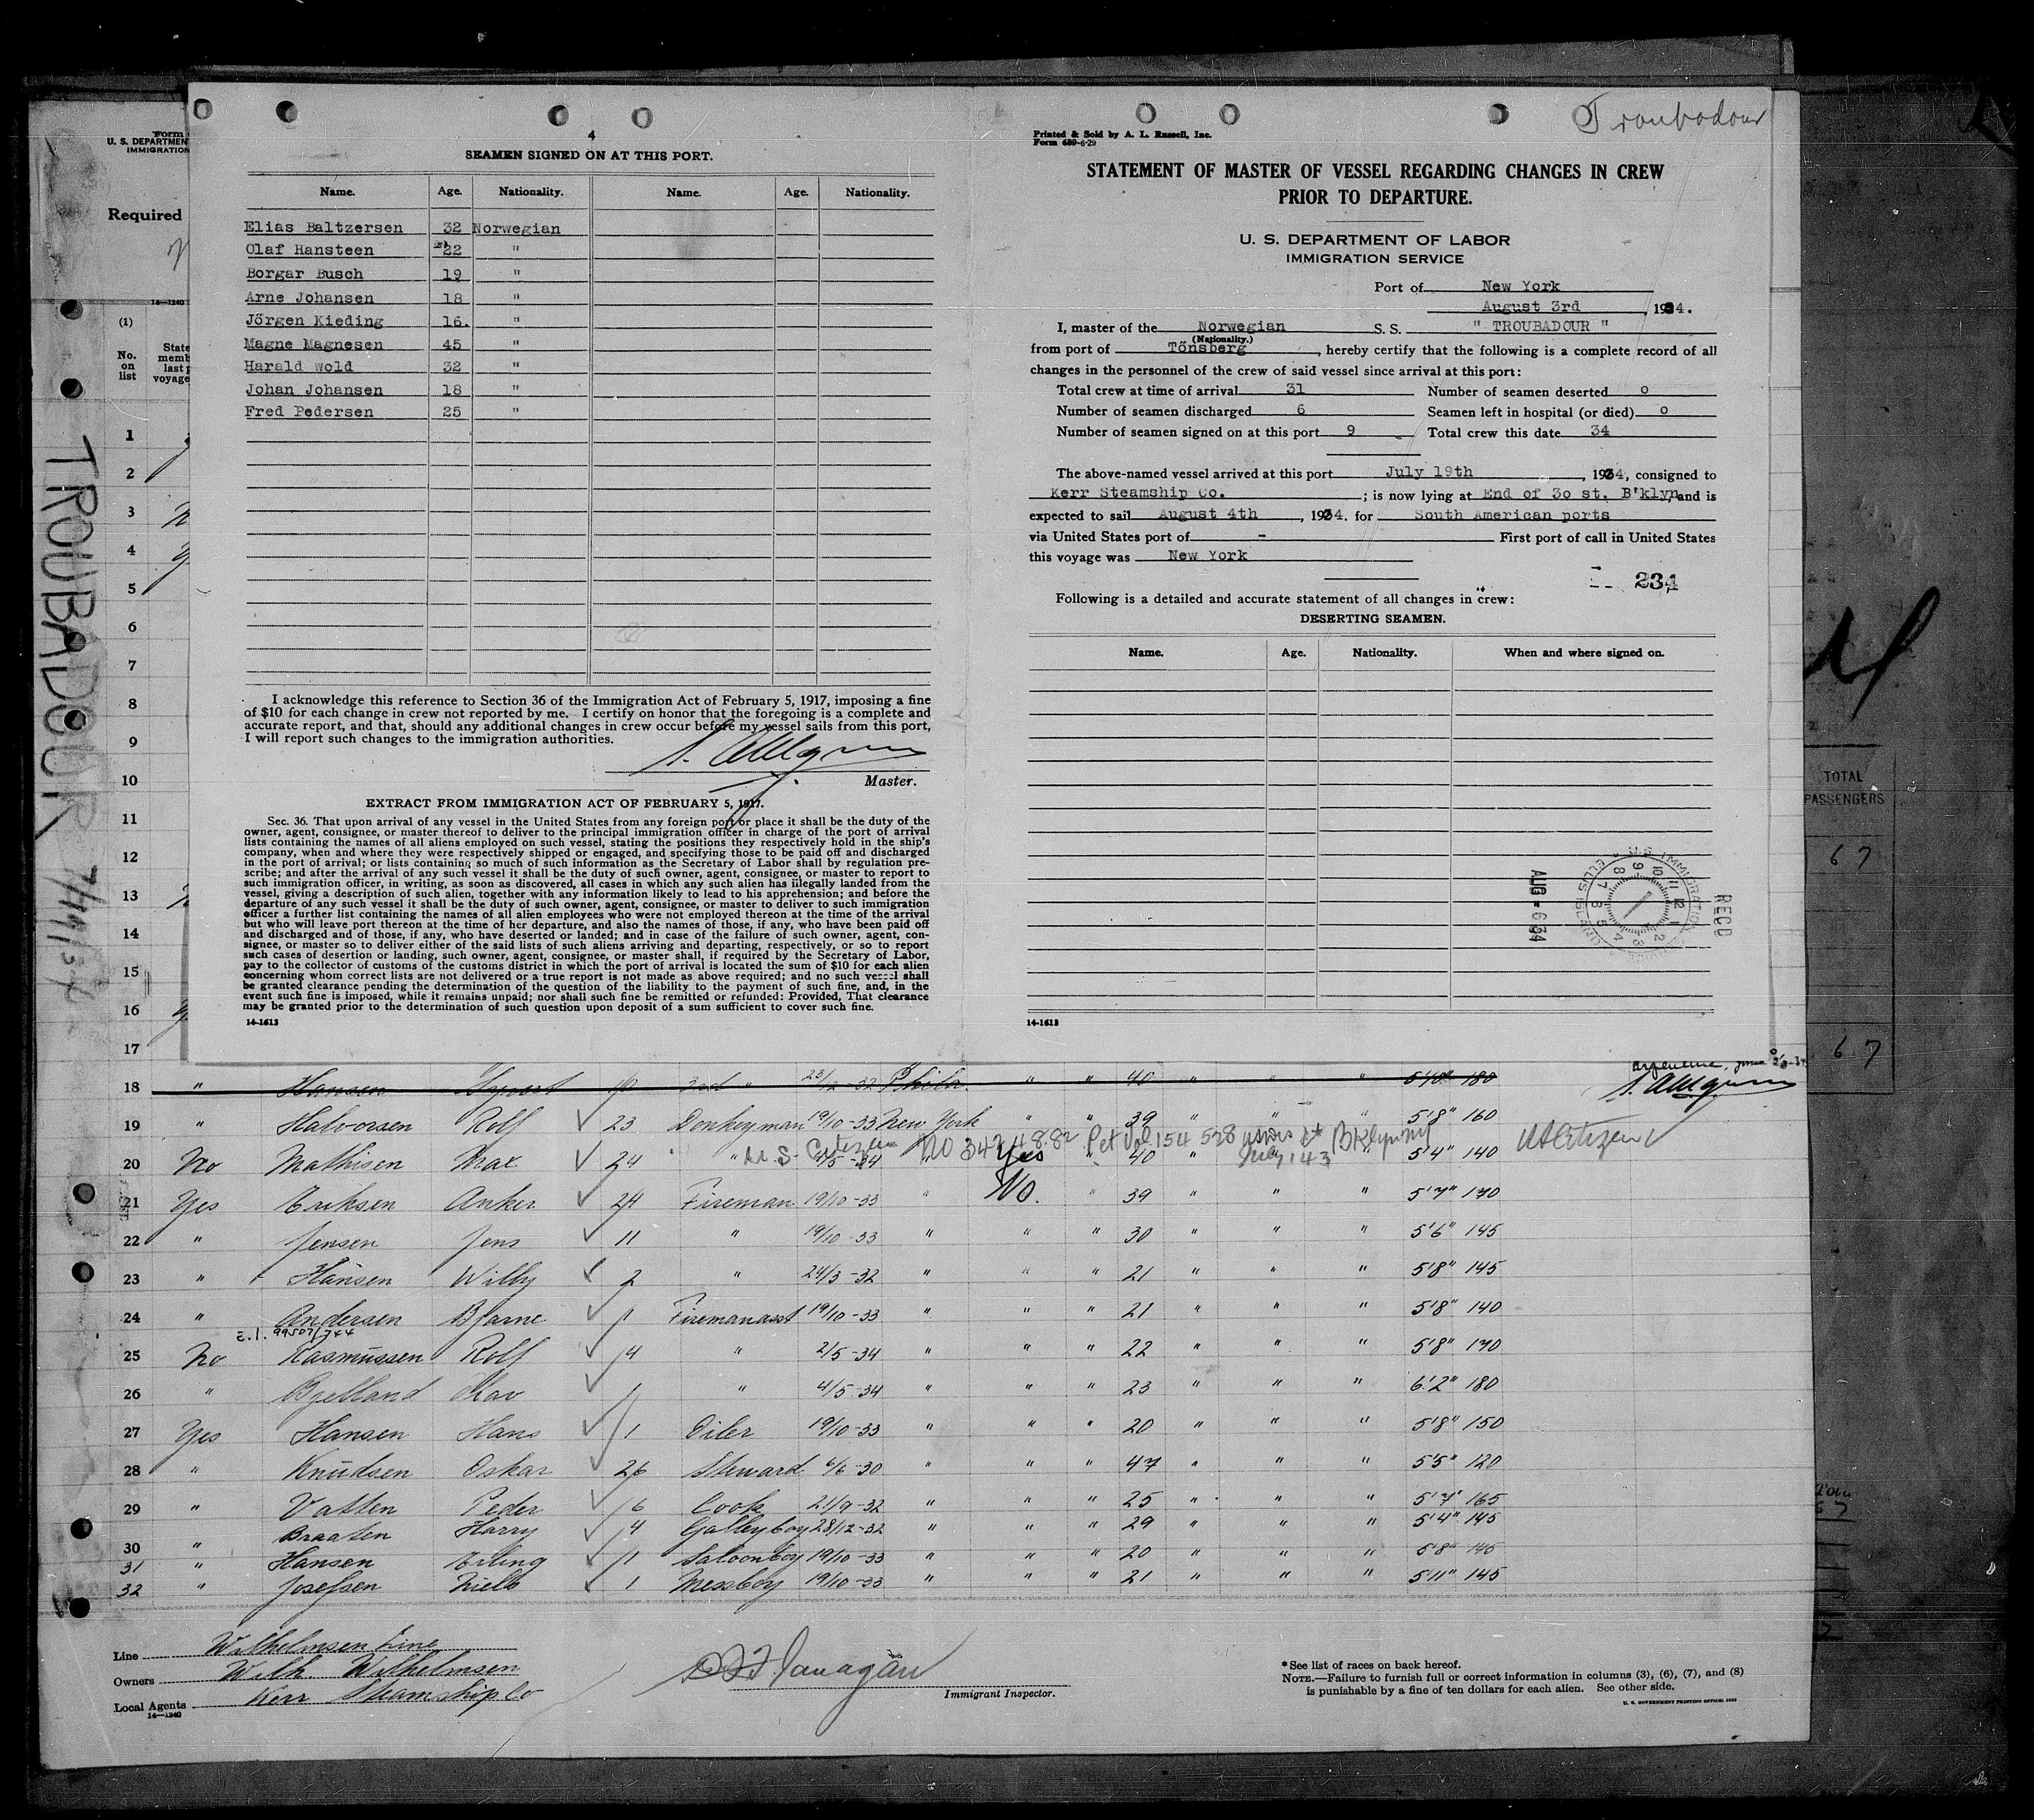 Troubadour
TROUBADOUR 7/19/34
Form
U. S. DEPARTMEN
IMMIGRATION
Required
14-1240
(1)
No. on list
State
memb
last p
voyage
1
2
3
4
5
6
7
8
9
10
11
12
13
14
15
16
17
4
SEAMEN SIGNED ON AT THIS PORT.
Name. Age. Nationality. Name. Age. Nationality.
Elias Baltzersen 32 Norwegian
Olaf Hansteen 22 "
Borgar Busch 19 "
Arne Johansen 18 "
Jörgen Kieding 16. "
Magne Magnesen 45 "
Harald Wold 32 "
Johan Johansen 18 "
Fred Pedersen 25 "
I acknowledge this reference to Section 36 of the Immigration Act of February 5, 1917, imposing a fine
of $10 for each change in crew not reported by me. I certify on honor that the foregoing is a complete and
accurate report, and that, should any additional changes in crew occur before my vessel sails from this port,
I will report such changes to the immigration authorities.
Master.
EXTRACT FROM IMMIGRATION ACT OF FEBRUARY 5, 1917.
Sec. 36. That upon arrival of any vessel in the United States from any foreign port or place it shall be the duty of the
owner, agent, consignee, or master thereof to deliver to the principal immigration officer in charge of the port of arrival
lists containing the names of all aliens employed on such vessel, stating the positions they respectively hold in the ship's
company, when and where they were respectively shipped or engaged, and specifying those to be paid off and discharged
in the port of arrival; or lists containing so much of such information as the Secretary of Labor shall by regulation pre-
scribe; and after the arrival of any such vessel it shall be the duty of such owner, agent, consignee, or master to report to
such immigration officer, in writing, as soon as discovered, all cases in which any such alien has illegally landed from the
vessel, giving a description of such alien, together with any information likely to lead to his apprehension; and before the
departure of any such vessel it shall be the duty of such owner, agent, consignee, or master to deliver to such immigration
officer a further list containing the names of all alien employees who were not employed thereon at the time of the arrival
but who will leave port thereon at the time of her departure, and also the names of those, if any, who have been paid off
and discharged and of those, if any, who have deserted or landed; and in case of the failure of such owner, agent, con-
signee, or master so to deliver either of the said lists of such aliens arriving and departing, respectively, or so to report
such cases of desertion or landing, such owner, agent, consignee, or master shall, if required by the Secretary of Labor,
pay to the collector of customs of the customs district in which the port of arrival is located the sum of $10 for each alien
concerning whom correct lists are not delivered or a true report is not made as above required; and no such vessel shall
be granted clearance pending the determination of the question of the liability to the payment of such fine, and, in the
event such fine is imposed, while it remains unpaid; nor shall such fine be remitted or refunded: Provided, That clearance
may be granted prior to the determination of such question upon deposit of a sum sufficient to cover such fine.
14-1613
Printed & Sold by A. L. Russell, Inc.
Form 689-6-29
STATEMENT OF MASTER OF VESSEL REGARDING CHANGES IN CREW
PRIOR TO DEPARTURE.
U. S. DEPARTMENT OF LABOR
IMMIGRATION SERVICE
Port of New York
August 3rd , 1934.
I, master of the Norwegian S. S. " TROUBADOUR "
(Nationality.)
from port of Tönsberg , hereby certify that the following is a complete record of all
changes in the personnel of the crew of said vessel since arrival at this port:
Total crew at time of arrival 31 Number of seamen deserted o
Number of seamen discharged 6 Seamen left in hospital (or died) o
Number of seamen signed on at this port 9 Total crew this date 34
The above-named vessel arrived at this port July 19th , 1934, consigned to
Kerr Steamship Co. ; is now lying at End of 3o st. B'klyn, and is
expected to sail August 4th , 1934. for South American ports
via United States port of - First port of call in United States
this voyage was New York
234
Following is a detailed and accurate statement of all changes in crew:
DESERTING SEAMEN.
Name. Age. Nationality. When and where signed on.
U.S. IMMIGRATION ELLIS ISLAND
AUG - 6 34
RECD
14-1613
TOTAL
PASSENGERS
67
67
18 " Hansen 10 3rd " 28/12-32 Phila. " " 40 " " " 5'10" 180
19 " Halvorsen Rolf 23 Donkeyman 19/10-33 New York " " 39 " " " 5'8" 160
U.S. Citizen No 3424882 Pet Vol 154 528 Bklyn NY
20 No Mathisen Max 24 " 4/5-34 " Yes " 40 " 5'4" 140 US Citizen
21 Yes Eriksen Anker 24 Fireman 19/10-33 " No. " 39 " " " 5'7" 170
22 " Jensen Jens 11 " 19/10-33 " " " 30 " " " 5'6" 145
23 " Hansen Willy 2 " 24/3-32 " " " 21 " " " 5'8" 145
24 " Andersen Bjarne 1 Firemanasst 19/10-33 " " " 21 " " " 5'8" 140
E.I. 99507/744
25 No Rasmussen Rolf 4 " 2/5-34 " " " 22 " " " 5'8" 170
26 " Bjelland Olav 1 " 4/5-34 " " " 23 " " " 6'2" 180
27 Yes Hansen Hans 1 Oiler 19/10-33 " " " 20 " " " 5'8" 150
28 " Knudsen Oskar 26 Steward 6/6-30 " " " 47 " " " 5'5" 120
29 " Vatten Peder 6 Cook 21/9-32 " " " 25 " " " 5'7" 165
30 " Braaten Harry 4 Galleyboy 28/12-32 " " " 29 " " " 5'4" 145
31 " Hansen Erling 1 Saloonboy 19/10-33 " " " 20 " " " 5'8" 145
32 " Josefsen Niels 1 Messboy 19/10-33 " " " 21 " " " 5'11" 145
Line Wilhelmsen Line
Owners Wilh. Wilhelmsen
Local Agents Kerr Steamship Co
14-1240
Flanagan
Immigrant Inspector.
* See list of races on back hereof.
NOTE.—Failure to furnish full or correct information in columns (3), (6), (7), and (8)
is punishable by a fine of ten dollars for each alien. See other side.
U. S. GOVERNMENT PRINTING OFFICE: